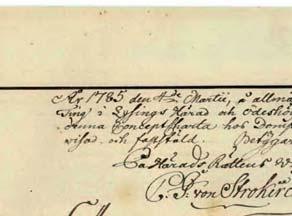 År 1785 den 4de Martii, å allmä
Ting i Lysings Härad och Ödeshö
denna Concept Charta hos Domp
wisad, och fastställd. Betygar
På Härads Rättens w
C. F. von Strokirc